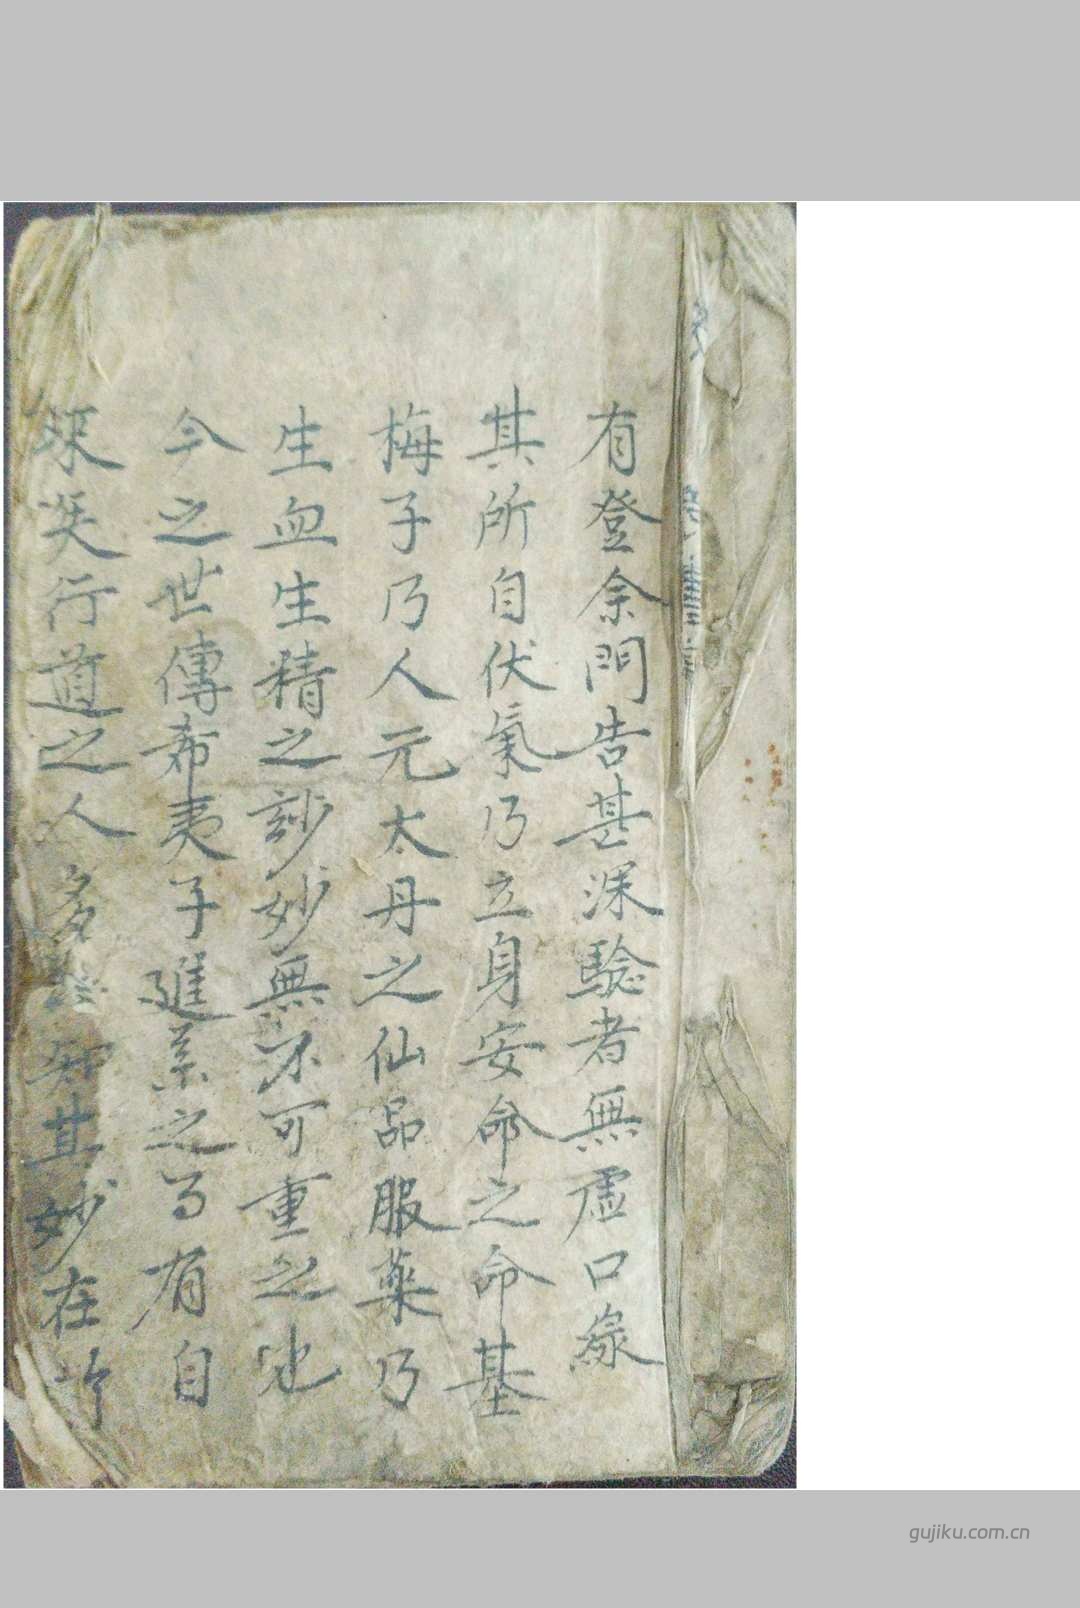 有登余門告甚深驗者無虛口緣
其所自伏氣乃立身安命之命基
梅子乃人元太丹之仙品服藥乃
生血生精之訬妙無不可重之也
今之世傳希夷子進之有自
行道之人多知其妙在
gujiku.com.cn